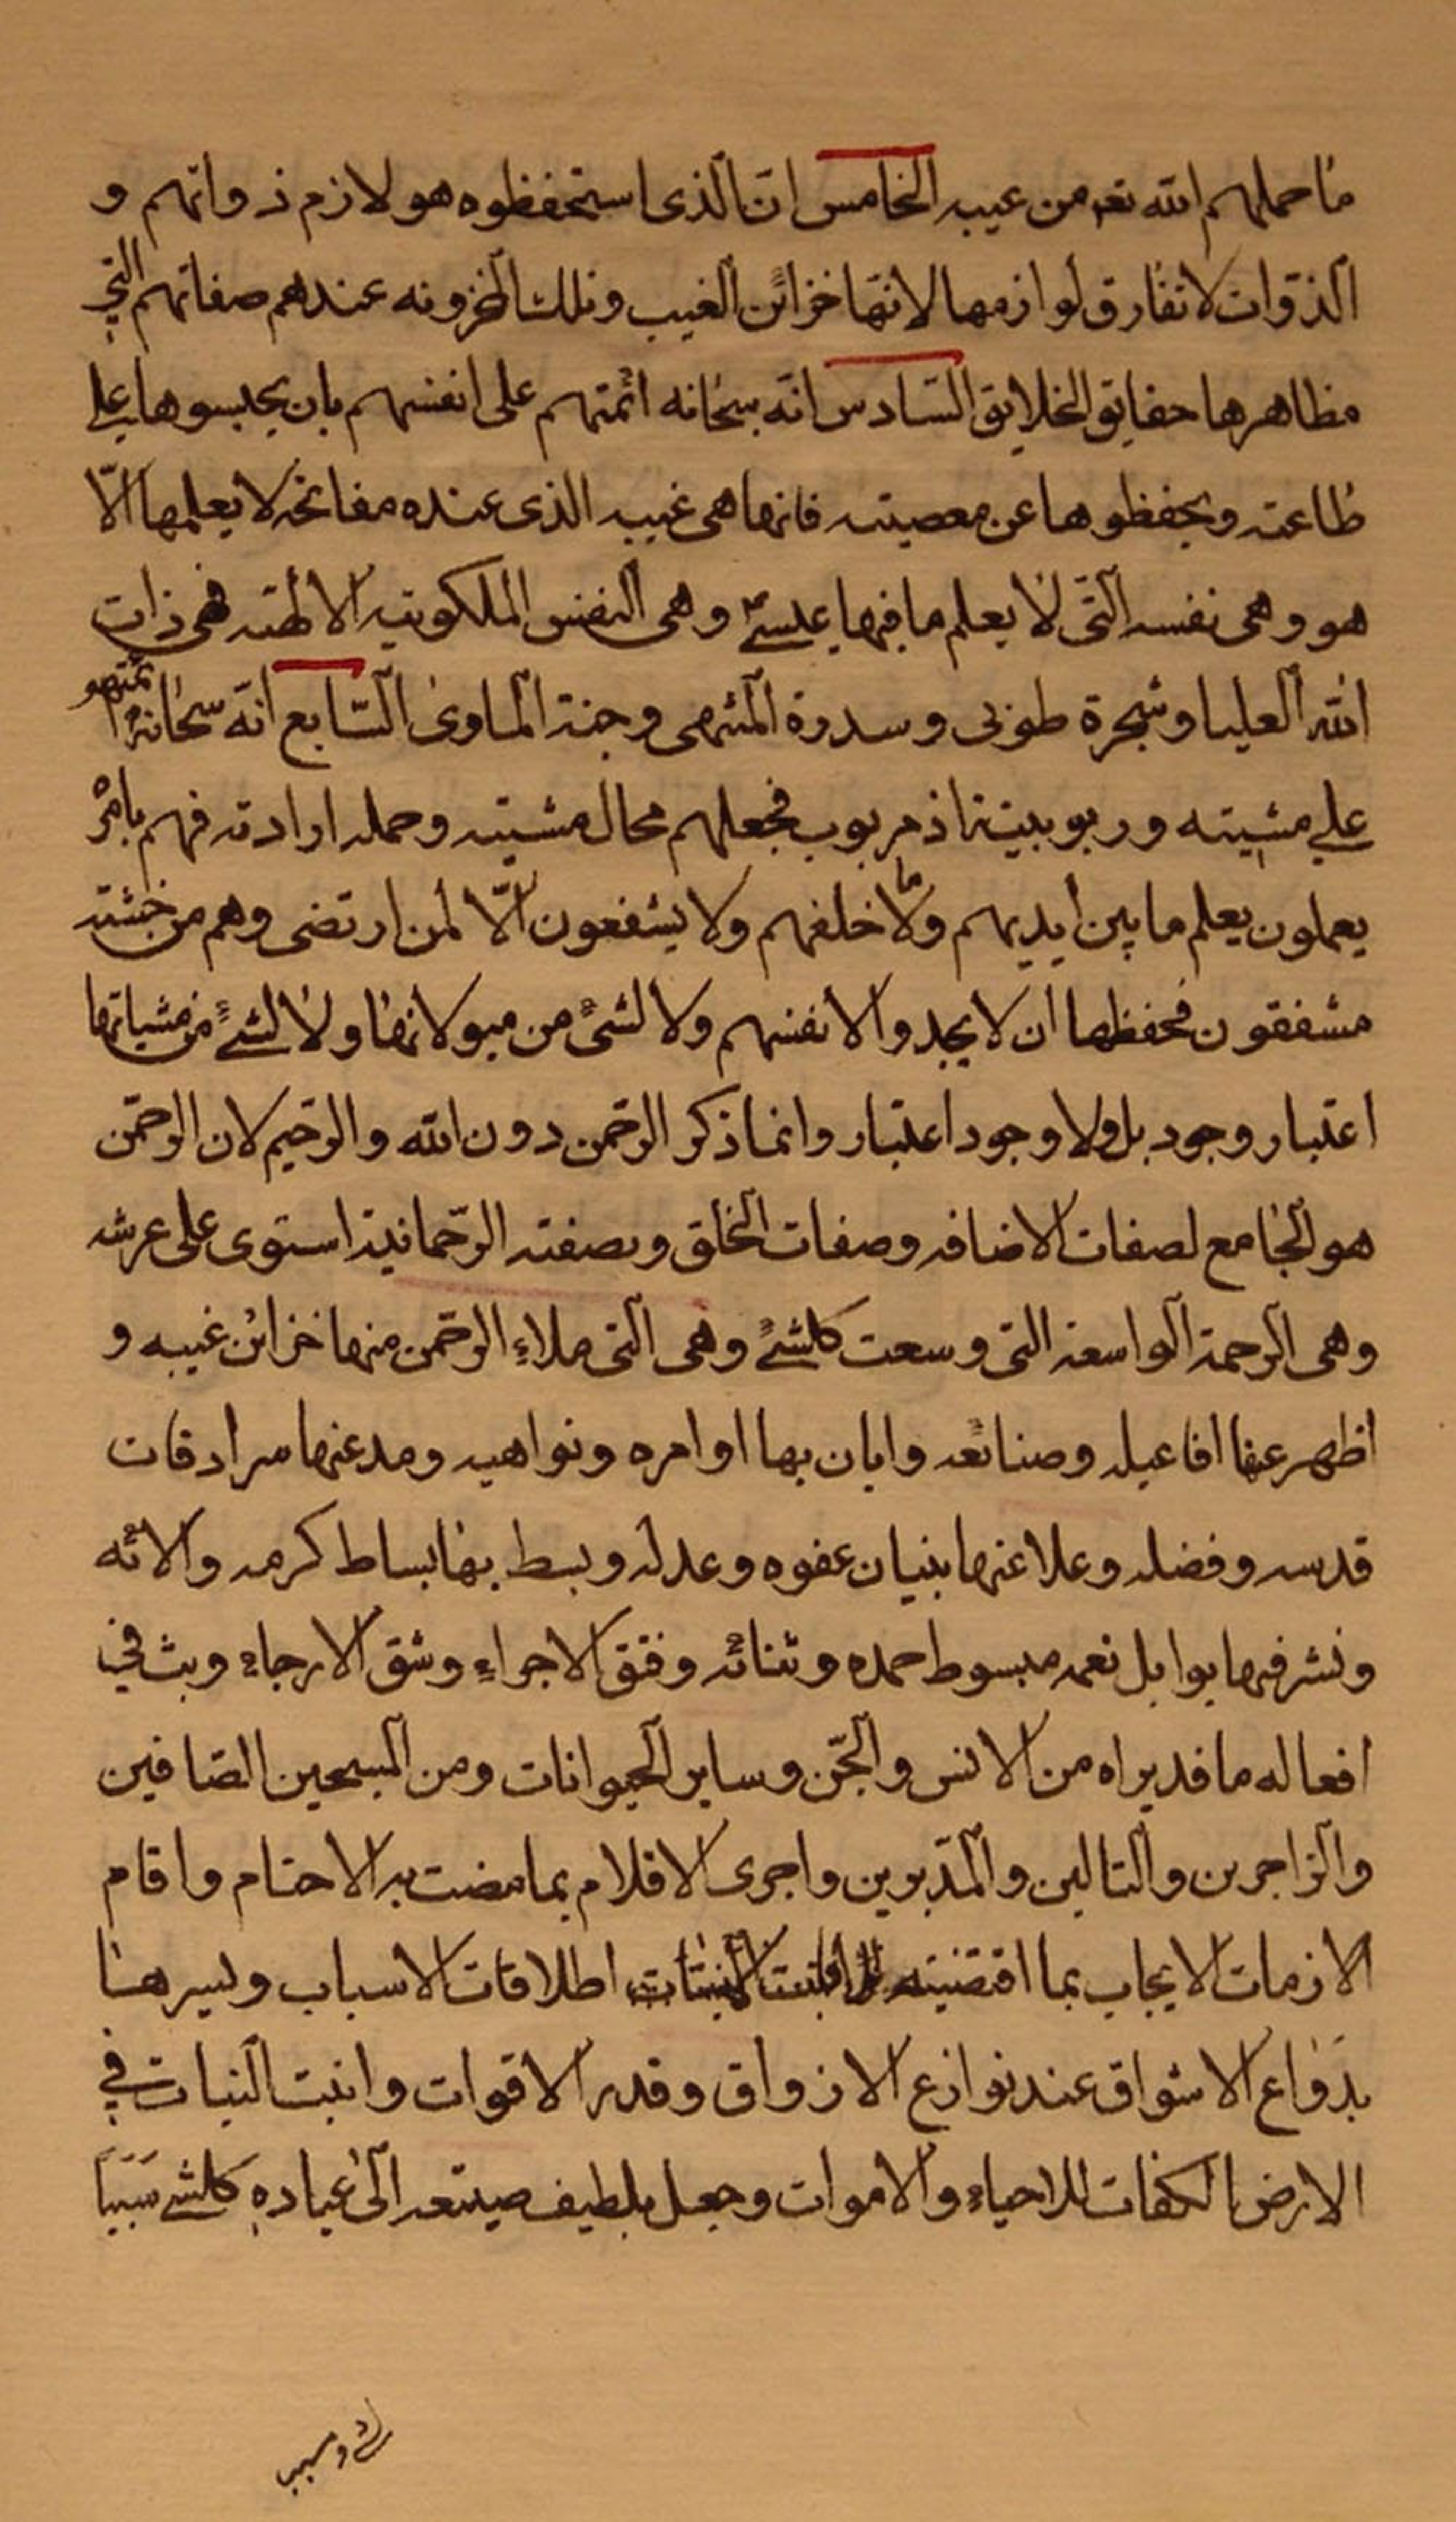 ما حملهم الله تعـ من عيبه الخامس انّ الّذى استحفظوه هو لازم ذواتهم و
الذوات لا تفارق لوازمها لانّها خزائن الغيب وتلك المخزونه عندهم صفاتهم التي
مظاهرها حقايق الخلايق السّادس انّه سبحانه ائمتهم على انفسهم بان يحبسوها على
طاعته ويحفظوها عن معصيته فانها هى غيبه الذى عنده مفاتحه لا يعلمها الّا
هو وهى نفسه الّتى لا يعلم ما فيها عيسىٰ وهى النفس الملكوتيه الالهيّه فهى ذات
الله العليا وشجرة طوبى وسدرة المنتهى وجنة الماوىٰ السّابع انّه سبحانه ائمتهم
على مشيته وربوبيته اذ مربوب فجعلهم محال مشيته وحمله ارادته فهم بامره
يعملون يعلم ما بين أيديهم وما خلفهم ولا يشفعون الّا لمن ارتضى وهم من خشيته
مشفقون فحفظها ان لا يجدوا لانفسهم ولا لشئ من ميولاتها ولا لشئ من مشياتها
اعتبار وجود بل ولا وجود اعتبار وانما ذكر الرحّمن دون الله والرحّيم لان الرحمّن
هو الجامع لصفات الاضافه وصفات الخلق وبصفته الرّحمانية استوى على عرشه
وهى الرحمة الواسعة التى وسعت كلشئ وهى الّتى ملاء الرحّمن منها خزائن غيبه و
اظهر عنها افاعيله وصنائعه وابان بها اوامره ونواهيه ومد عنها سرادقات
قدسه وفضله وعلا عنها بنيان عفوه وعدله وبسط بها بساط كرمه والائه
ونشر فيها بوابل نعمه مبسوط حمده وثنائه وفتق الاجراء وشق الارجاء وبث في
افعاله ما قد يراه من الانس والجّن وساير الحيوانات ومن المسبحين الصّافين
والزاجرين والتالين والمدّبرين واجرى الاقلام بما مضت به الاحتام واقام
الازمات الايجاب بما اقتضيته اطلاقات الاسباب ويسرهنا
بدواع الاشواق عند نوازع الازواق وقدر الاقوات وانبت النبات في
الارض الكفات للاحياء والاموات وجعل بلطيف صنعه الى عباده كلشئ سببا